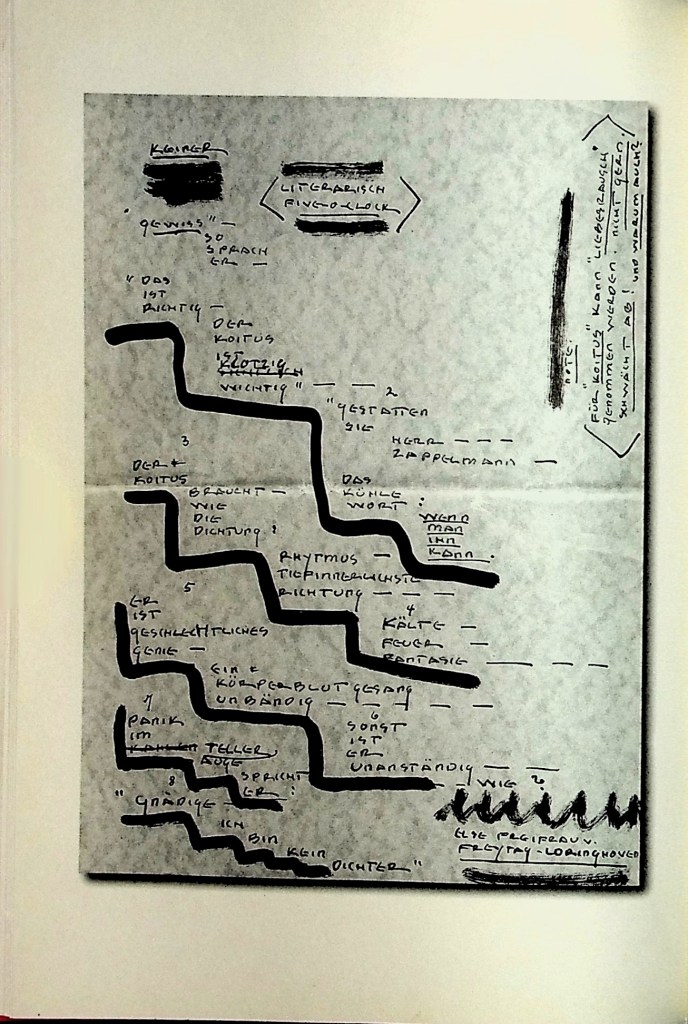 KEINER
LITERARISCH
FIVE-O-CLOCK
"GEWISS" —
SO
SPRACH
ER —
"DAS
IST
RICHTIG —
DER
KOITUS
IST
KLOTZIG
WICHTIG" — —
2
"GESTATTEN
SIE
HERR — — —
ZAPPELMANN —
DAS
KÜHLE
WORT:
WENN
MAN
IHN
KANN.
3
DER
KOITUS
BRAUCHT —
WIE
DIE
DICHTUNG:
RHYTMUS —
TIEFINNERLICHSTE
RICHTUNG — — —
4
KÄLTE —
FEUER —
FANTASIE — — —
5
ER
IST
GESCHLECHTLICHES
GENIE —
EIN
KÖRPERBLUTGESANG
UNBÄNDIG — — — — —
6
SONST
IST
ER
UNANSTÄNDIG — —
— WIE?
7
PANIK
IM
KAHLEN TELLER
AUGE
SPRICHT
ER:
8
"GNÄDIGE —
ICH
BIN
KEIN
DICHTER"
ELSE FREIFRAU V.
FREYTAG-LORINGHOVEN
NOTE:
FÜR "KOITUS" KANN "LIEBESRAUSCH"
GENOMMEN WERDEN. NICHT GERN.
SCHWÄCHT AB! UND WARUM AUCH?